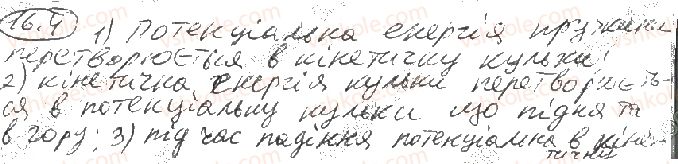 16.4 1) Потенціальна енергія пружини
перетворюється в кінетичну кульки
2) кінетична енергія кульки перетворюєть-
ся в потенціальну кульки що піднята
вгору; 3) під час падіння потенціална в кіне-
тичну